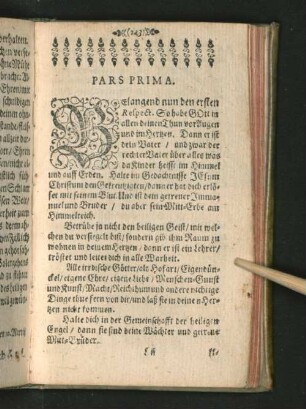 (243)
PARS PRIMA.
BElangend nun den ersten
Respect. So habe GOtt in
allen deinen Thun vor Augen
und im Hertzen. Dann er ist
dein Vater / und zwar der
rechte Vater über alles was
da Kinder heist im Himmel
und auff Erden. Halte im Gedächtniß JEsum
Christum den Gecreutzigten / dann er hat dich erlö-
set mit seinem Blut Und ist dein getreuer Imma-
nuel und Bruder / du aber sein Mitt-Erbe am
Himmelreich.
Betrübe ja nicht den heiligen Geist / mit wel-
chen du versiegelt bist / sondern gib ihm Raum zu
wohnen in deinem Hertzen / dann er ist ein Lehrer /
tröstet und leitet dich in alle Warheit.
Alle irrdische Götter / als Hofart / Eigendün-
ckel / eigene Ehre / eigene Liebe / Menschen-Gunst
und Kunst / Macht / Reichthum und andere nichtige
Dinge thue fern von dir / und laß sie in deine Her-
tzen nicht kommen.
Halte dich in der Gemeinschafft der heiligen
Engel / dann sie sind deine Wächter und getreue
Mitt-Brüder.